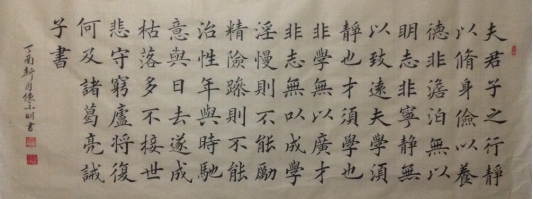 夫君子之行靜
以脩身儉以養
德非澹泊無以
明志非寧靜無
以致遠夫學須
靜也才須學也
非學無以廣才
非志無以成學
淫慢則不能勵
精險躁則不能
治性年與時馳
意與日去遂成
枯落多不接世
悲守窮廬將復
何及諸葛亮誡
子書
丁酉 月 書